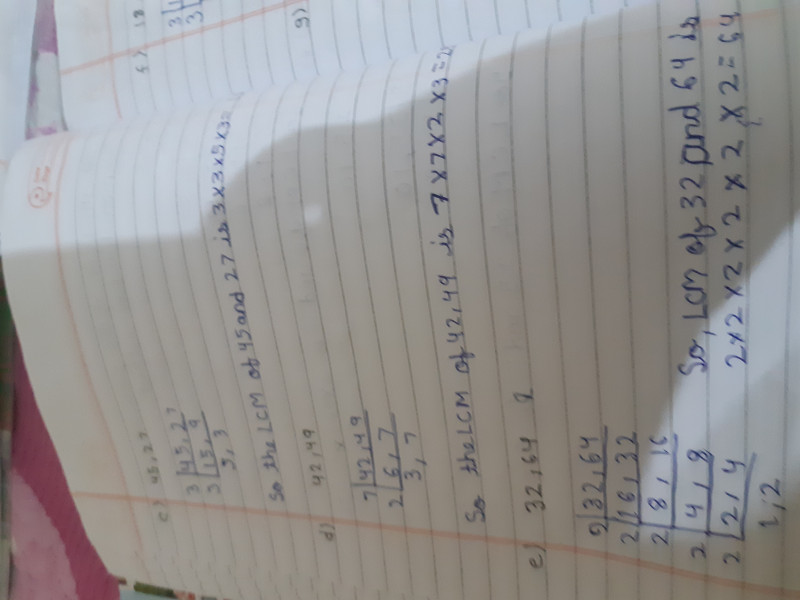 c) 45,27
3 45,27
3 15, 9
5, 3
So the LCM of 45 and 27 is 3x3x5x3=
d) 42,49
7 42,49
2 6, 7
3, 7
So the LCM of 42,49 is 7x7x2x3=2
e) 32,64
2 32,64
2 16, 32
2 8, 16
2 4, 8 So, LCM of 32 and 64 is
2 2, 4 2x2x2x2x2x2=64
1,2
f) 18
3
3
g)